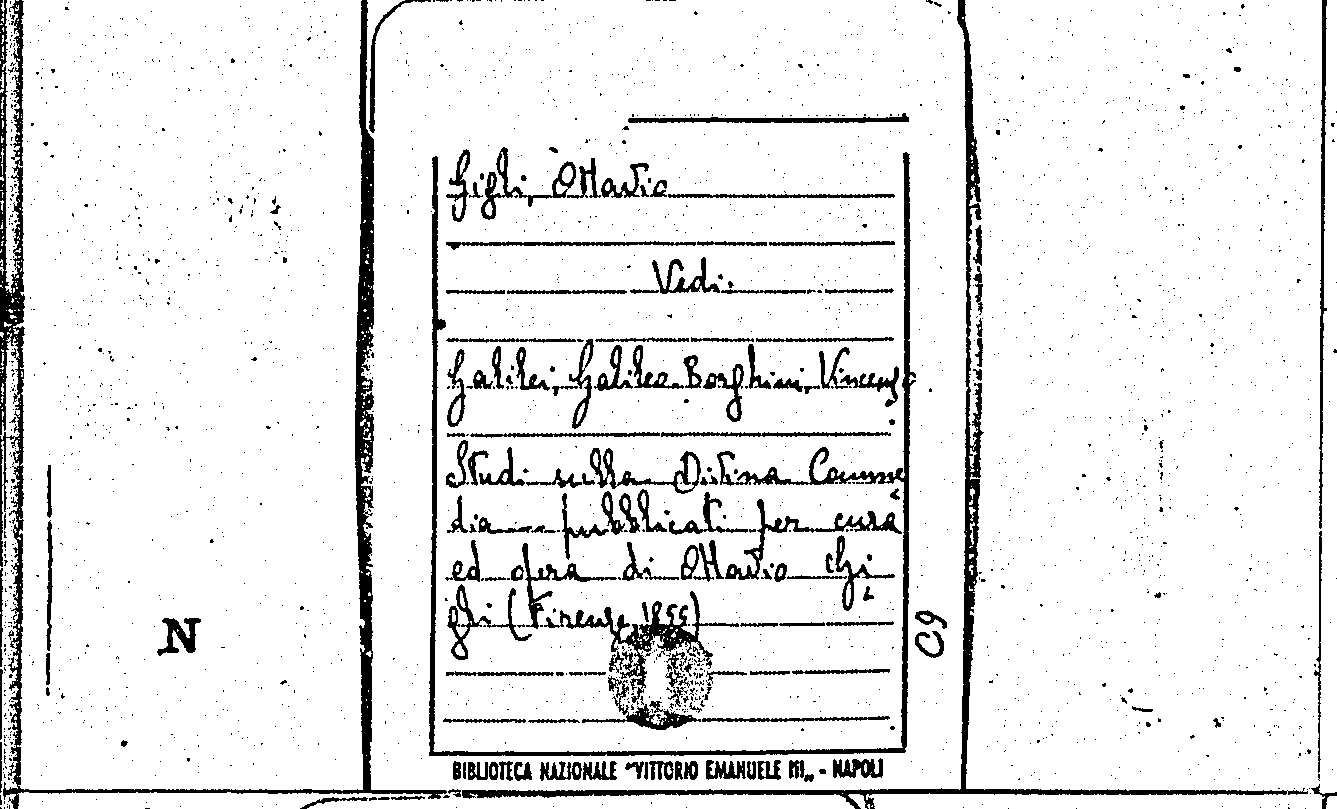 Gigli, Ottavio
Vedi:
Galilei, Galileo - Borghini, Vincenzo
Studi sulla Divina Comme-
dia --- pubblicati per cura
ed opera di Ottavio Gi-
gli (Firenze, 1855)
C9
N
BIBLIOTECA NAZIONALE "VITTORIO EMANUELE III„ - NAPOLI